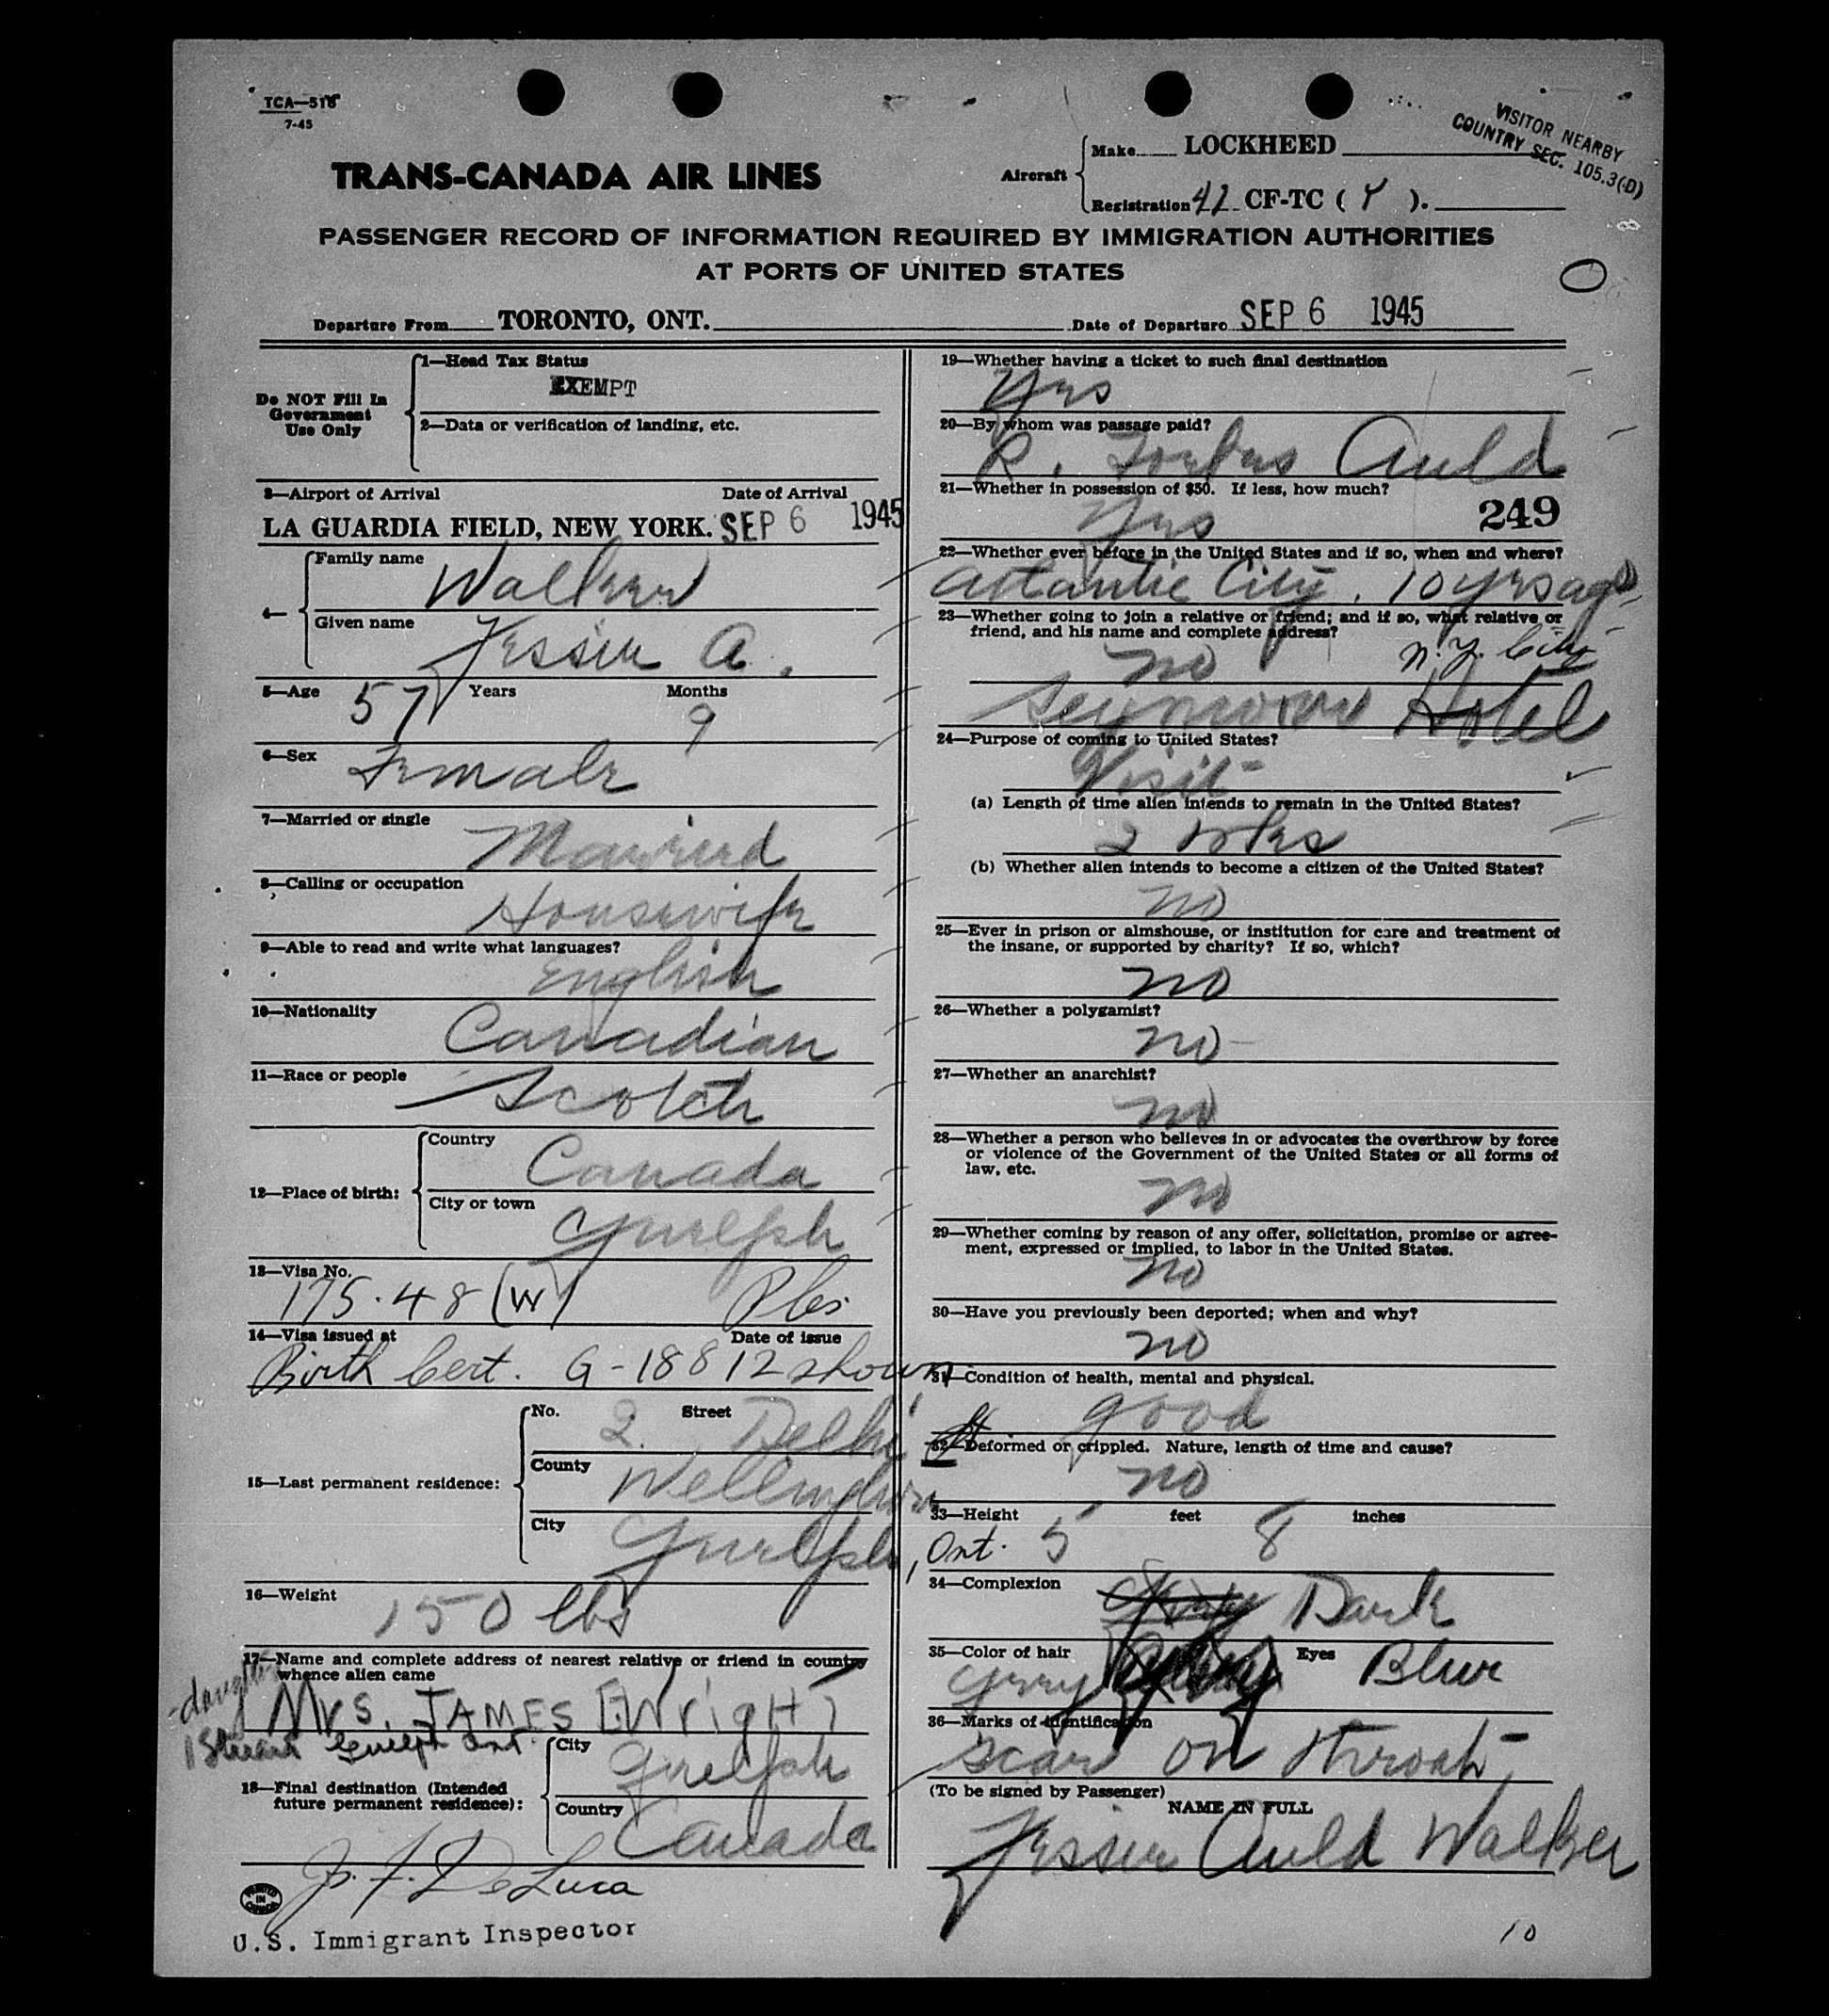 TCA—518
7-45
TRANS-CANADA AIR LINES
Aircraft
Make LOCKHEED
Registration 42 CF-TC ( Y ).
VISITOR NEARBY
COUNTRY SEC. 105.3(D)
PASSENGER RECORD OF INFORMATION REQUIRED BY IMMIGRATION AUTHORITIES
AT PORTS OF UNITED STATES
Departure From TORONTO, ONT. Date of Departure SEP 6 1945
Do NOT Fill In
Government
Use Only
1—Head Tax Status
EXEMPT
2—Data or verification of landing, etc.
3—Airport of Arrival Date of Arrival
LA GUARDIA FIELD, NEW YORK. SEP 6 1945
4— Family name
Walker
Given name
Jessie A.
5—Age 57 Years Months 9
6—Sex Female
7—Married or single
Married
8—Calling or occupation
Housewife
9—Able to read and write what languages?
English
10—Nationality
Canadian
11—Race or people
Scotch
12—Place of birth:
Country
Canada
City or town
Guelph
13—Visa No.
175.48 (W)
14—Visa issued at Date of issue
Birth Cert. G-18812 shown
15—Last permanent residence:
No. 2. Street Delhi
County Wellington
City Guelph, Ont.
16—Weight
150 lbs
17—Name and complete address of nearest relative or friend in country
whence alien came
-daughter
Mrs. JAMES E. Wright
Guelph Ont.
18—Final destination (Intended
future permanent residence):
City
Guelph
Country
Canada
J. F. DeLuca
U.S. Immigrant Inspector
19—Whether having a ticket to such final destination
Yes
20—By whom was passage paid?
R. Forbes Auld
21—Whether in possession of $50. If less, how much?
Yes 249
22—Whether ever before in the United States and if so, when and where?
Atlantic City. 10 yrs ago
23—Whether going to join a relative or friend; and if so, what relative or
friend, and his name and complete address?
no N.Y. City
Seymour Hotel
24—Purpose of coming to United States?
Visit
(a) Length of time alien intends to remain in the United States?
2 wks
(b) Whether alien intends to become a citizen of the United States?
no
25—Ever in prison or almshouse, or institution for care and treatment of
the insane, or supported by charity? If so, which?
no
26—Whether a polygamist?
no
27—Whether an anarchist?
no
28—Whether a person who believes in or advocates the overthrow by force
or violence of the Government of the United States or all forms of
law, etc.
no
29—Whether coming by reason of any offer, solicitation, promise or agree-
ment, expressed or implied, to labor in the United States.
no
30—Have you previously been deported; when and why?
no
31—Condition of health, mental and physical.
good
32—Deformed or crippled. Nature, length of time and cause?
no
33—Height 5 feet 8 inches
34—Complexion Dark
35—Color of hair Grey Eyes Blue
36—Marks of identification
scar on throat
(To be signed by Passenger)
NAME IN FULL
Jessie Auld Walker
10